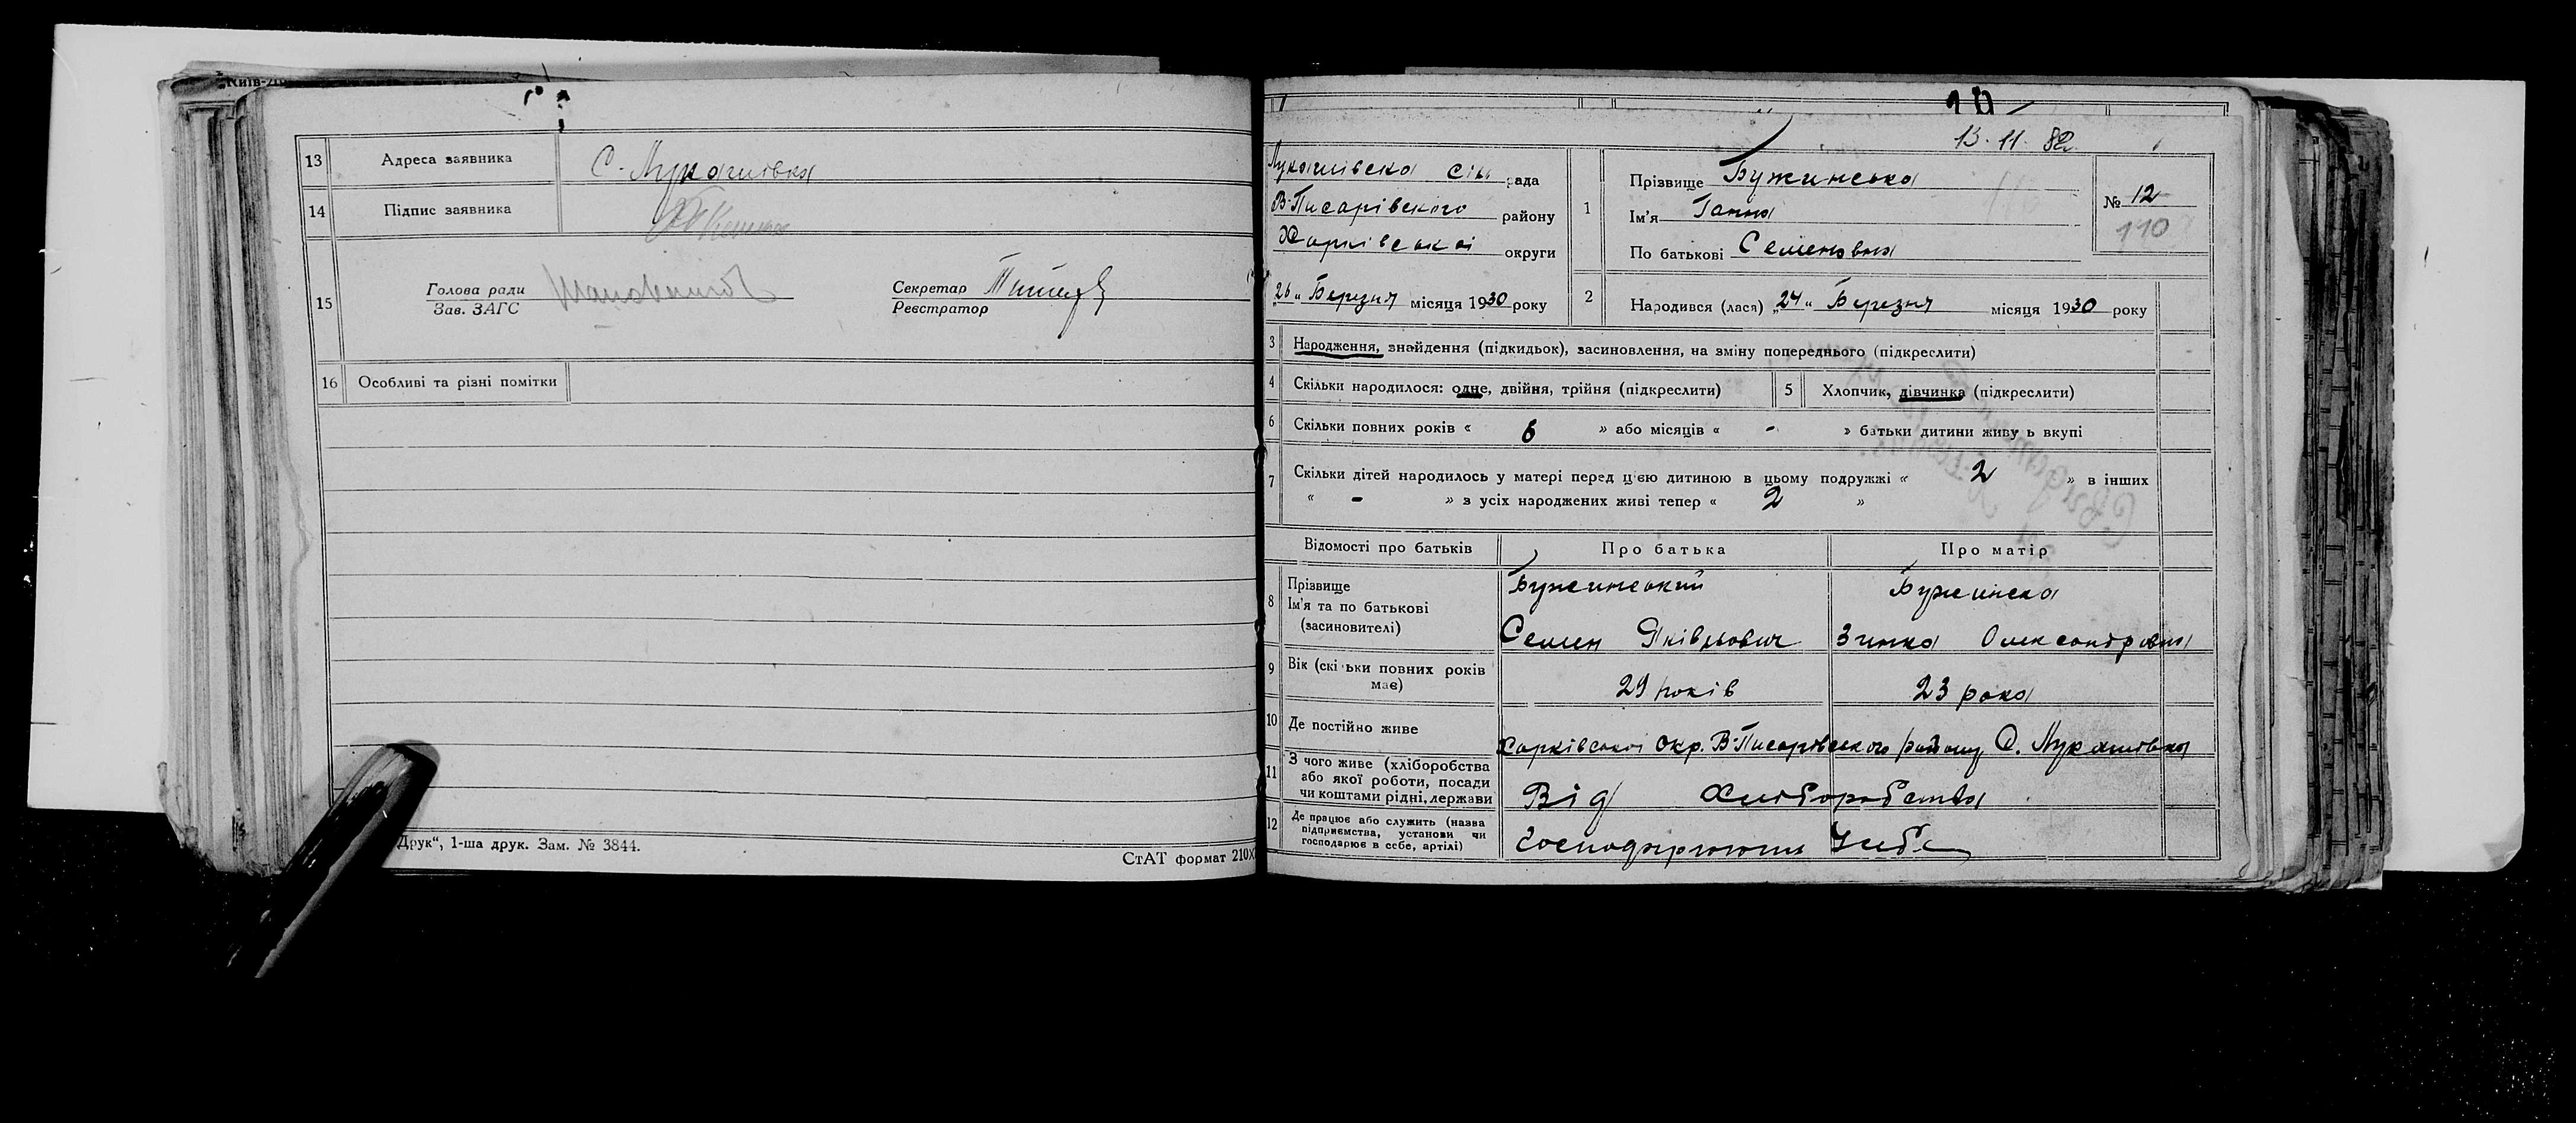 Київ
13 Адреса заявника С. Лукашівка
14 Підпис заявника
15 Голова ради
Зав. ЗАГС
Секретар
Реєстратор
16 Особливі та різні помітки
Друк“, 1-ша друк. Зам. № 3844.
СтАТ формат 210х
10
13. 11. 82
Лукашівска сіл рада
В-Писарівського району
Харківської округи
„26“ Березня місяця 1930 року
1 Прізвище Бужинська
Ім'я Ганна
По батькові Семеновна
№ 12
110
2 Народився (лася) „24“ Березня місяця 1930 року
3 Народження, знайдення (підкидьок), засиновлення, на зміну попереднього (підкреслити)
4 Скільки народилося: одне, двійня, трійня (підкреслити)
5 Хлопчик, дівчинка (підкреслити)
6 Скільки повних років « 6 » або місяців « - » батьки дитини живу ь вкупі
7 Скільки дітей народилось у матері перед цією дитиною в цьому подружжі « 2 » в інших
« - » з усіх народжених живі тепер « 2 »
Відомості про батьків Про батька Про матір
8 Прізвище Бужинський Бужинска
Ім'я та по батькові
(засиновителі) Семен Яківльович Зинка Олександровна
9 Вік (скільки повних років
має) 29 років 23 рока
10 Де постійно живе Харківської Окр. В-Писарівського району С. Лукашівка
11 З чого живе (хліборобства
або якої роботи, посади
чи коштами рідні, держави Від Хліборобства
12 Де працює або служить (назва
підприємства, установи чи
господарює в себе, артілі) Господарюють